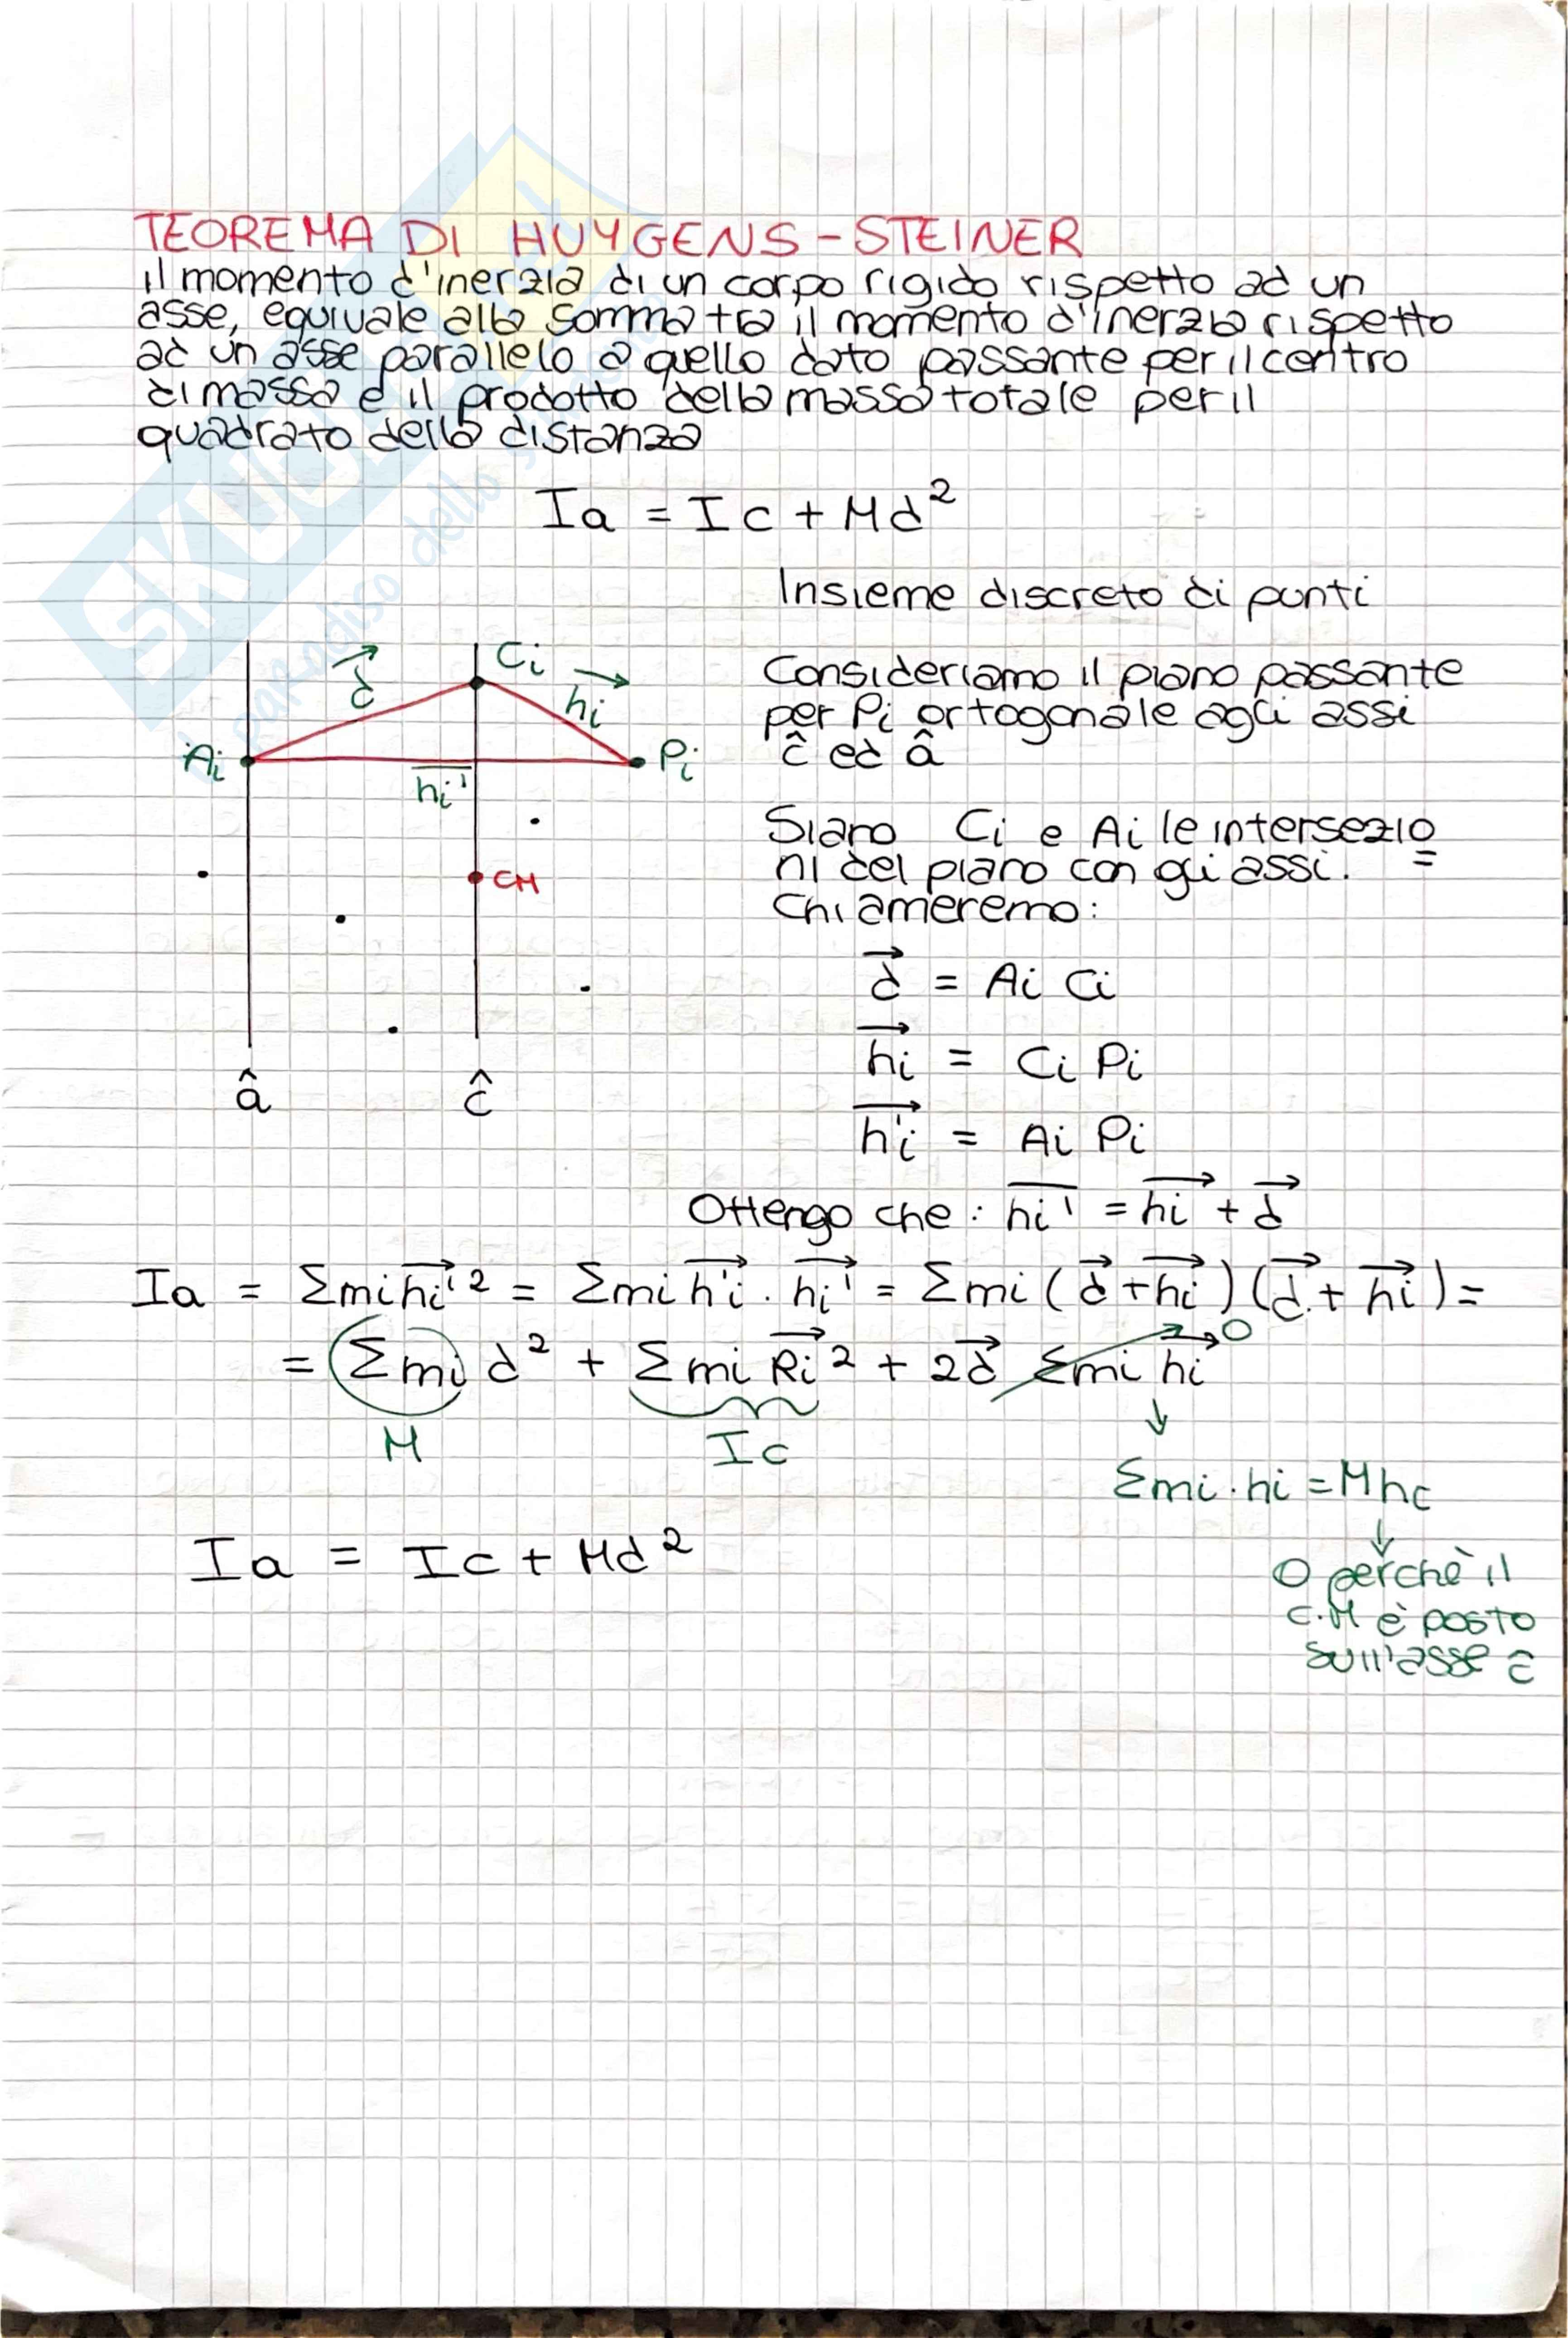 TEOREMA DI HUYGENS-STEINER
il momento d'inerzia di un corpo rigido rispetto ad un
asse, equivale alla somma tra il momento d'inerzia rispetto
ad un asse parallelo a quello dato passante per il centro
di massa e il prodotto della massa totale per il
quadrato della distanza
Ia = Ic + Md²
Insieme discreto di punti
d⃗
Ci
hi⃗
Ai
hi'
Pi
CM
â
ĉ
Consideriamo il piano passante
per Pi ortogonale agli assi
ĉ ed â
Siano Ci e Ai le intersezio=
ni del piano con gli assi.
Chiameremo:
d⃗ = Ai Ci
hi⃗ = Ci Pi
h'i⃗ = Ai Pi
Ottengo che: hi' = hi⃗ + d⃗
Ia = Σmi hi'⃗² = Σmi h'i⃗ · hi'⃗ = Σmi (d⃗ + hi⃗)(d⃗ + hi⃗) =
= Σmi d² + Σmi Ri⃗² + 2d⃗ Σmi hi⃗ → 0
M
Ic
↓
Σmi · hi = Mhc
↓
0 perchè il
C.M è posto
sull'asse ĉ
Ia = Ic + Md²
SKUOLA.net
il paradiso dello studente